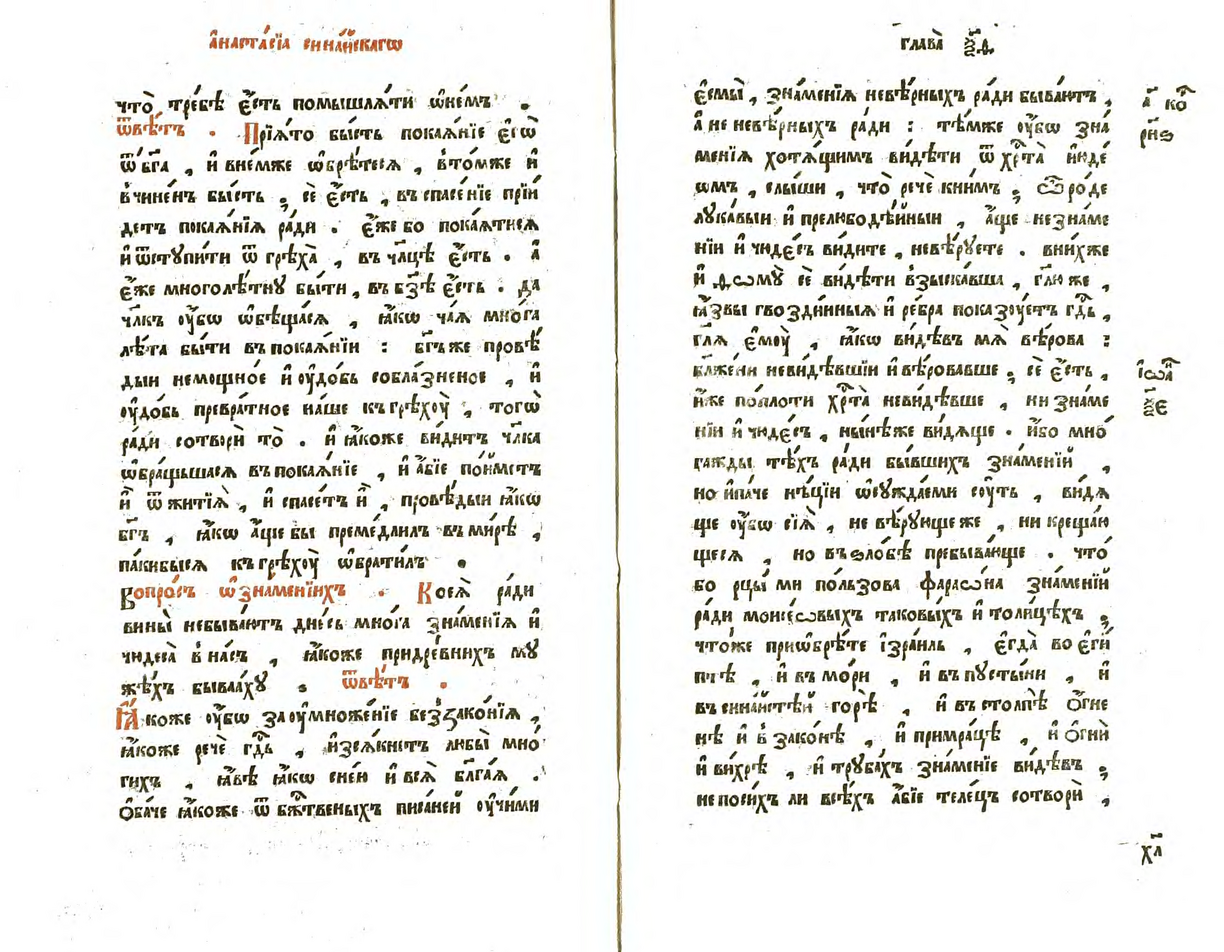 а҆наста́сїа сина́йскагѡ
что̀ тре́бѣ є҆́сть помышлѧ́ти ѡ҆не́мъ .
ѿвѣ́тъ . Прїѧ́то бы́сть покаѧ́нїе є҆гѡ̀
ѿ бг҃а , и҆ вне́мже ѡ҆брѣ́тесѧ , вто́мже и҆
вчине́нъ бы́сть ; сѐ є҆́сть , въ спасе́нїе прїи́
детъ покаѧ́нїѧ ра́ди . є҆́же бо покаѧ́тисѧ
и҆ ѿступи́ти ѿ грѣха̀ , въ чл҃цѣ є҆́сть . а҆
є҆́же многолѣ́тну бы́ти , въ бз҃ѣ є҆́сть . да
чл҃къ ᲂу҆́бѡ ѡ҆бѣща́сѧ , ꙗ҆́кѡ ча́ѧ мнѡ́га
лѣ́та бы́ти въ покаѧ́нїи : бг҃ъ же провѣ́
дыи немощно́е и҆ ᲂу҆до́бь собла́зненое , и҆
ᲂу҆до́бь превра́тное на́ше къ грѣхᲂу̀ , тогѡ̀
ра́ди сотворѝ то̀ . и҆ ꙗ҆́коже ви́дитъ чл҃ка
ѡ҆бра́щьшасѧ въ покаѧ́нїе , и҆ а҆́бїе по́иметъ
и҆̀ ѿ житїѧ̀ , и҆ спасе́тъ и҆̀ , провѣ́дыи ꙗ҆́кѡ
бг҃ъ , ꙗ҆́кѡ а҆́ще бы преме́дилъ въ ми́рѣ ,
па́кибысѧ къ грѣхᲂу̀ ѡ҆брати́лъ .
Вопро́съ ѡ҆ зна́менїихъ . Коеѧ̀ ра́ди
вины̀ небыва́ютъ дне́сь мнѡ́га зна́менїѧ и҆
чюдеса̀ в на́съ , ꙗ҆́коже придре́внихъ му
же́хъ быва́аху . ѿвѣ́тъ .
Ꙗ҆́коже ᲂу҆́бѡ за ᲂу҆мноше́нїе беззако́нїѧ ,
ꙗ҆́коже речѐ гд҇ь , и҆зсѧ́кнетъ любы̀ мно́
гихъ , ꙗ҆́вѣ ꙗ҆́кѡ си́еи и҆ всѧ̀ бл҃га́ѧ .
Ѻ҆ба́че ꙗ҆́коже ѿ бж҇твеныхъ писа́ней ᲂу҆чи́ми
глава̀ ѯ҃ѳ.
є҆смы̀ , зна́менїѧ невѣ́рныхъ ра́ди быва́ютъ ,
а҆ не невѣ́рныхъ ра́ди : тѣ́мже ᲂу҆́бѡ зна́
менїѧ хотѧ́щимъ ви́дѣти ѿ хрт҇а̀ и҆юде́
ѡмъ , слы́ши , что̀ речѐ кни́мъ ; Ѽ ро́де
лука́выи и҆ прелюбодѣ́йныи , а҆́ще не зна́ме
нїи и҆ чюде́съ ви́дите , невѣ́руете . вни́хже
и҆ ѳѡмꙋ̀ сѐ ви́дѣти взыска́вша , гл҃ю же ,
ꙗ҆́звы гвозди́нныѧ и҆ ре́бра показᲂу́етъ гд҇ь ,
гл҃ѧ є҆мᲂу̀ , ꙗ҆́кѡ ви́дѣвъ мѧ̀ вѣ́рова :
блаже́ни невидѣ́вшїи и҆ вѣ́ровавше ; сѐ є҆́сть ,
и҆́же попло́ти хрт҇а̀ невидѣ́вше , ни зна́ме
нїи и҆ чюде́съ , ны́нѣже ви́дѧще . и҆́бо мно́
гажды тѣ́хъ ра́ди бы́вшихъ зна́менїй ,
но и҆па́че нѣ́цїи ѡ҆сᲂужда́еми сᲂу́ть , ви́дѧ
ще ᲂу҆́бѡ сїѧ̀ , не вѣ́рующе же , ни креща́ю
щесѧ , но въ ѕло́бѣ пребыва́юще . что́
бо рцы́ ми по́льзова фараѡ́на зна́менїй
ра́ди моисе́ѡвыхъ таковы́хъ и҆ толи́цѣхъ ;
что́же приѡбрѣ́те і҆зра́иль , є҆гда̀ во є҆ги́
птѣ , и҆ въ мо́ри , и҆ въ пусты́ни , и҆
въ сина́йстѣй горѣ̀ , и҆ въ столпѣ̀ ѻ҆́гне
нѣ и҆ в зако́нѣ , и҆ примра́цѣ , и҆ ѻ҆гнѝ
и҆ ви́хрѣ , и҆ труба́хъ зна́менїе ви́дѣвъ ;
не поси́хъ ли всѣ́хъ а҆́бїе теле́цъ сотворѝ ,
а҃ ко
рин
і҆ѡа
ѯ҃є
хл҃